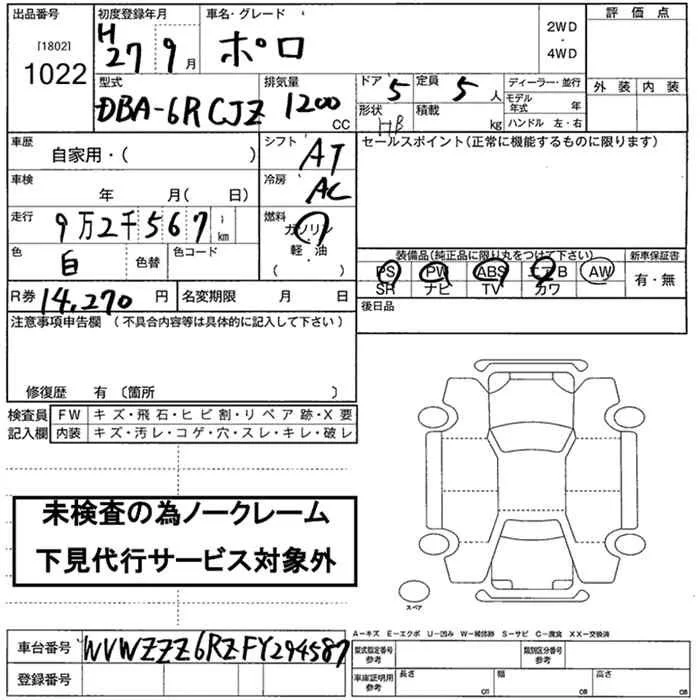 出品番号
[1802]
1022
初度登録年月
H 27 9 月
車名・グレード
ポロ
2WD
・
4WD
評価点
外装 内装
型式
DBA-6RCJZ
排気量
1200 CC
ドア 5
定員 5 人
形状 HB
積載 kg
ディーラー・並行
モデル年式 年
ハンドル 左・右
車歴
自家用・( )
シフト
AT
セールスポイント(正常に機能するものに限ります)
車検
年 月( 日)
冷房
AC
走行
9万2千567 km
燃料
ガソリン
軽・油
( )
色
白
色替
色コード
装備品(純正品に限り丸をつけて下さい)
PS PW ABS エアB AW
SR ナビ TV カワ
新車保証書
有・無
R券 14,270 円
名変期限 月 日
後日品
注意事項申告欄 (不具合内容等は具体的に記入して下さい)
修復歴 有 〔箇所 〕
検査員
記入欄
FW キズ・飛石・ヒビ割・リペア跡・X要
内装 キズ・汚レ・コゲ・穴・スレ・キレ・破レ
未検査の為ノークレーム
下見代行サービス対象外
スペア
A−キズ E−エクボ U−凹み W−補修跡 S−サビ C−腐食 XX−交換済
車台番号 WVWZZZ6RZFY294587
登録番号
型式指定番号
参考
類別区分番号
参考
車庫証明用
参考
長さ cm
幅 cm
高さ cm